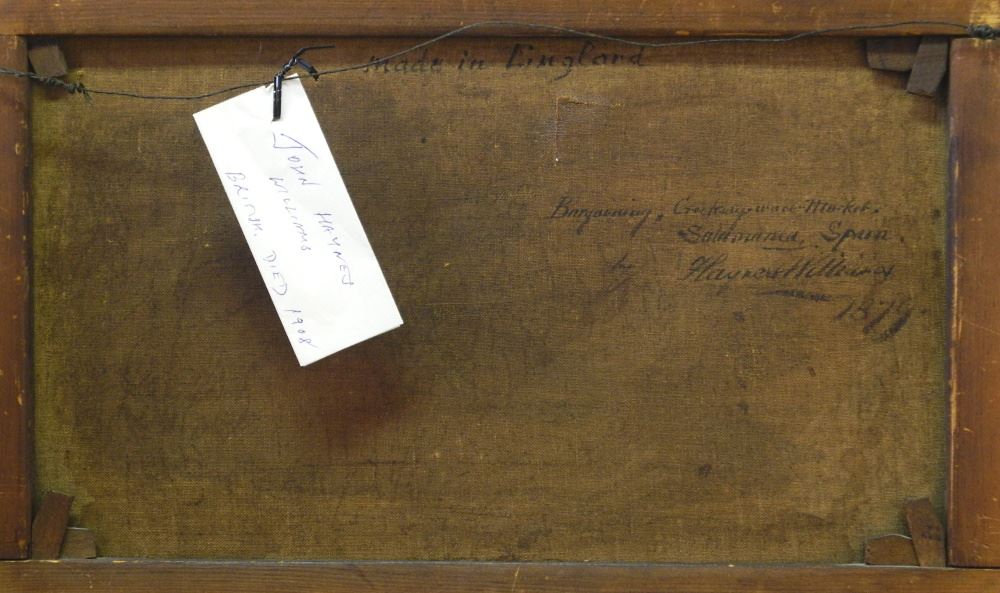 made in England
JOHN HAYNES
WILLIAMS
BRITISH. DIED 1908
Bargaining, Crockery-ware-Market.
Salamanca, Spain.
by Haynes Williams
1879.